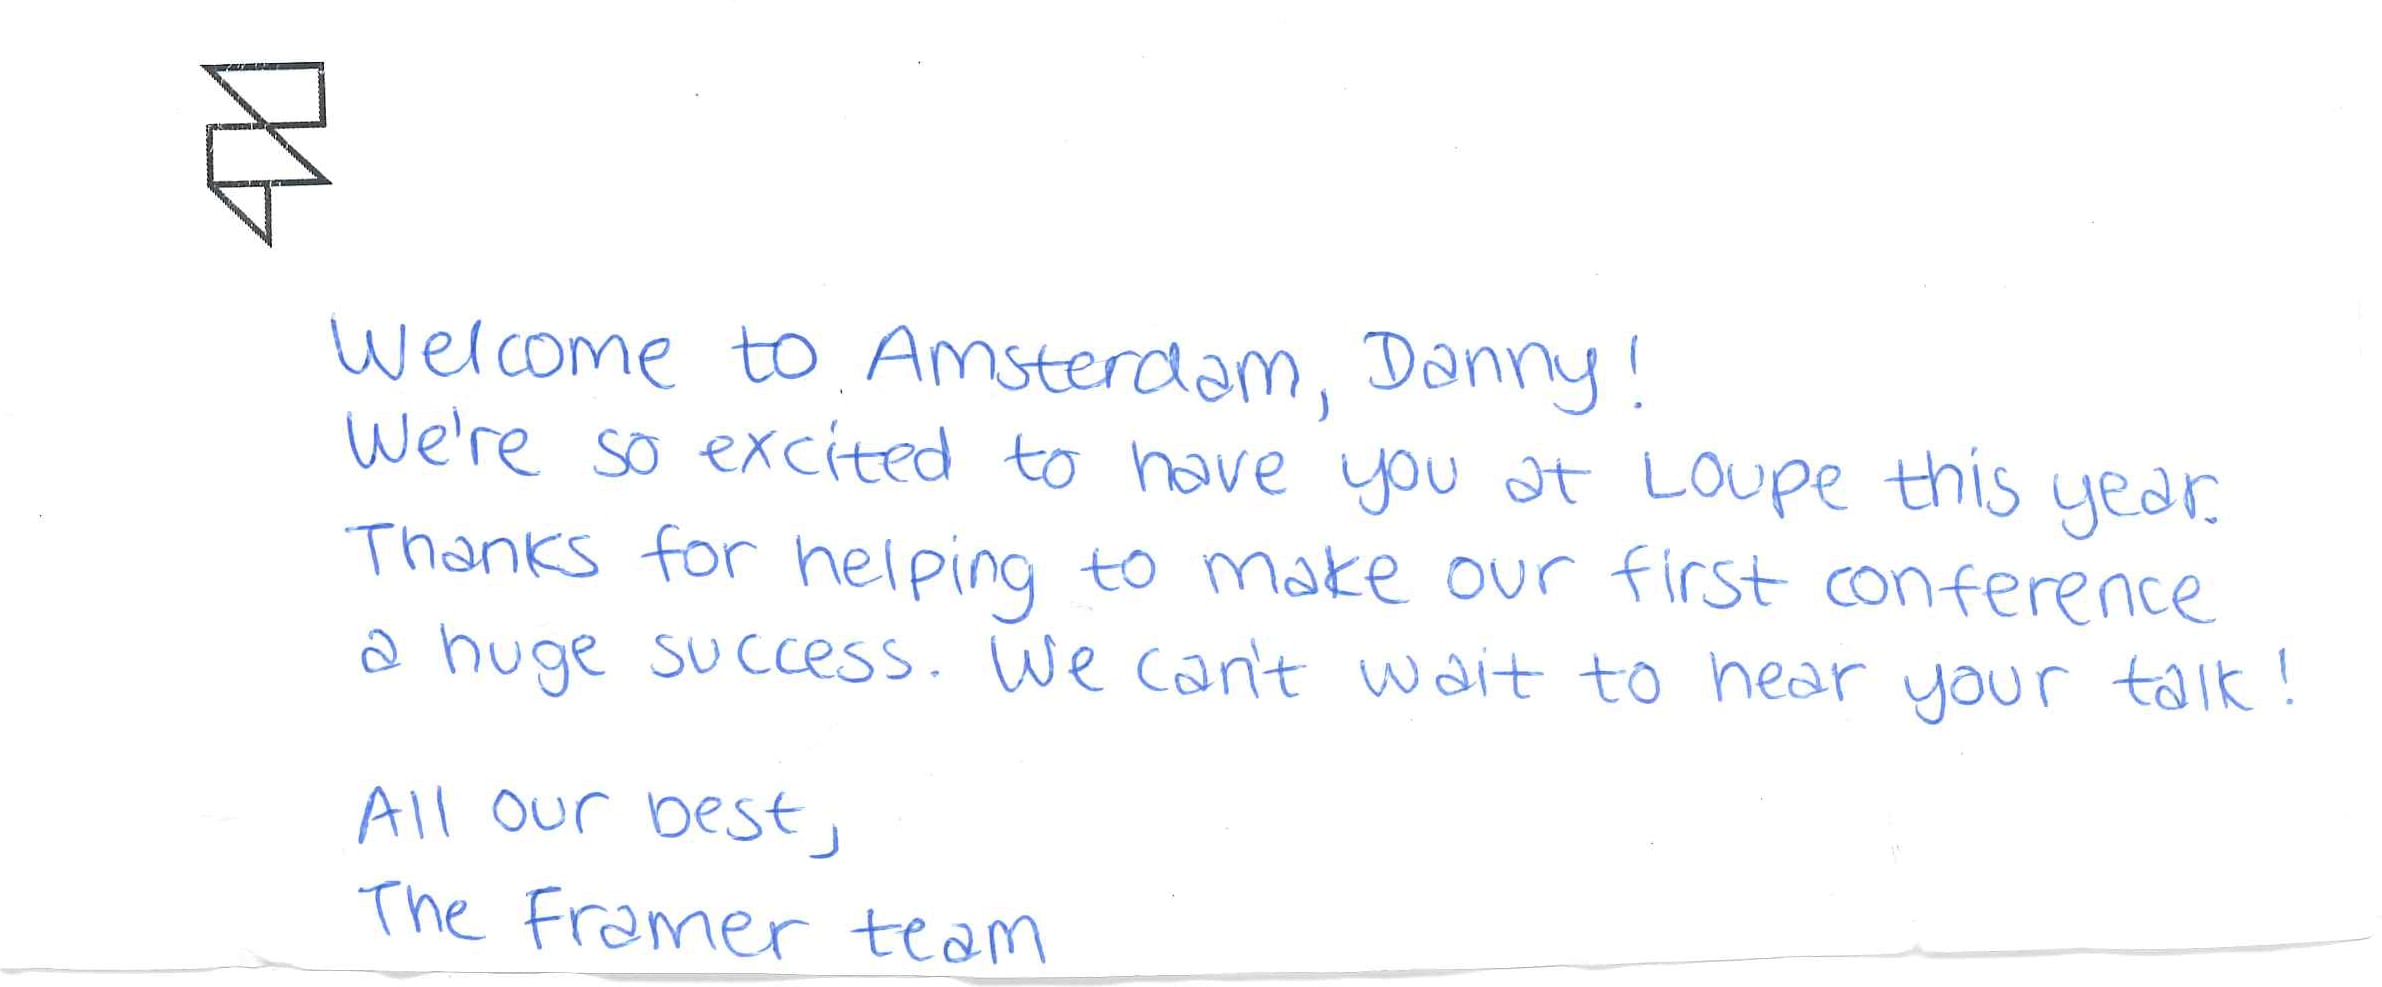 Welcome to Amsterdam, Danny!
We're so excited to have you at Loupe this year.
Thanks for helping to make our first conference
a huge success. We can't wait to hear your talk!
All our best,
The Framer team